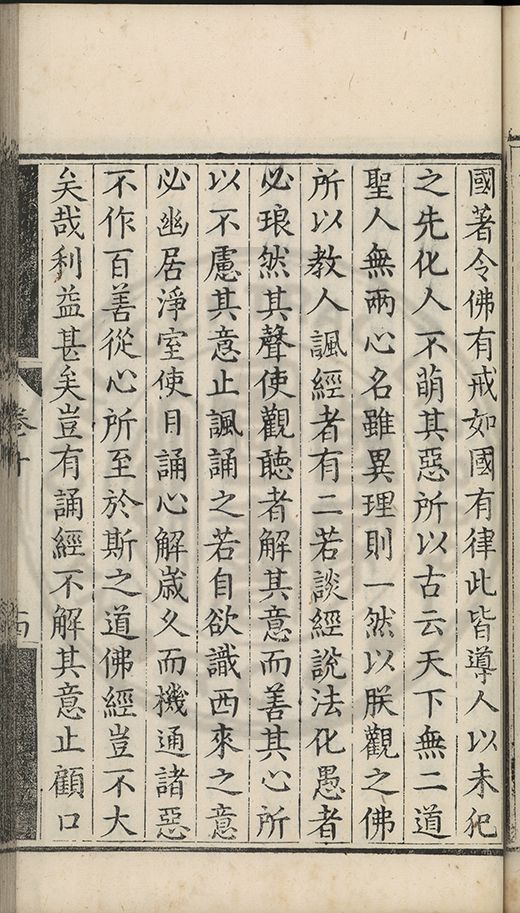 國著令佛有戒如國有律此皆導人以未犯
之先化人不萌其惡所以古云天下無二道
聖人無兩心名雖異理則一然以朕觀之佛
所以教人諷經者有二若談經說法化愚者
必琅然其聲使觀聽者解其意而善其心所
以不慮其意止諷誦之若自欲識西來之意
必幽居淨室使目誦心解歲久而機通諸惡
不作百善從心所至於斯之道佛經豈不大
矣哉利益甚矣豈有誦經不解其意止顧口
卷十